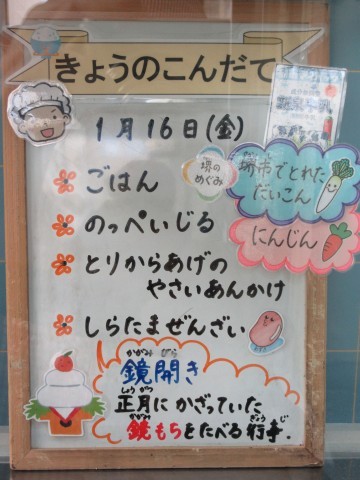 きょうのこんだて
1月16日(金)
堺のめぐみ
堺市でとれた
だいこん
にんじん
ごはん
のっぺいじる
とりからあげの
やさいあんかけ
しらたまぜんざい
かがみ びら
鏡開き
しょう がつ
正月にかざっていた
かがみ ぎょう じ
鏡もちをたべる行事.